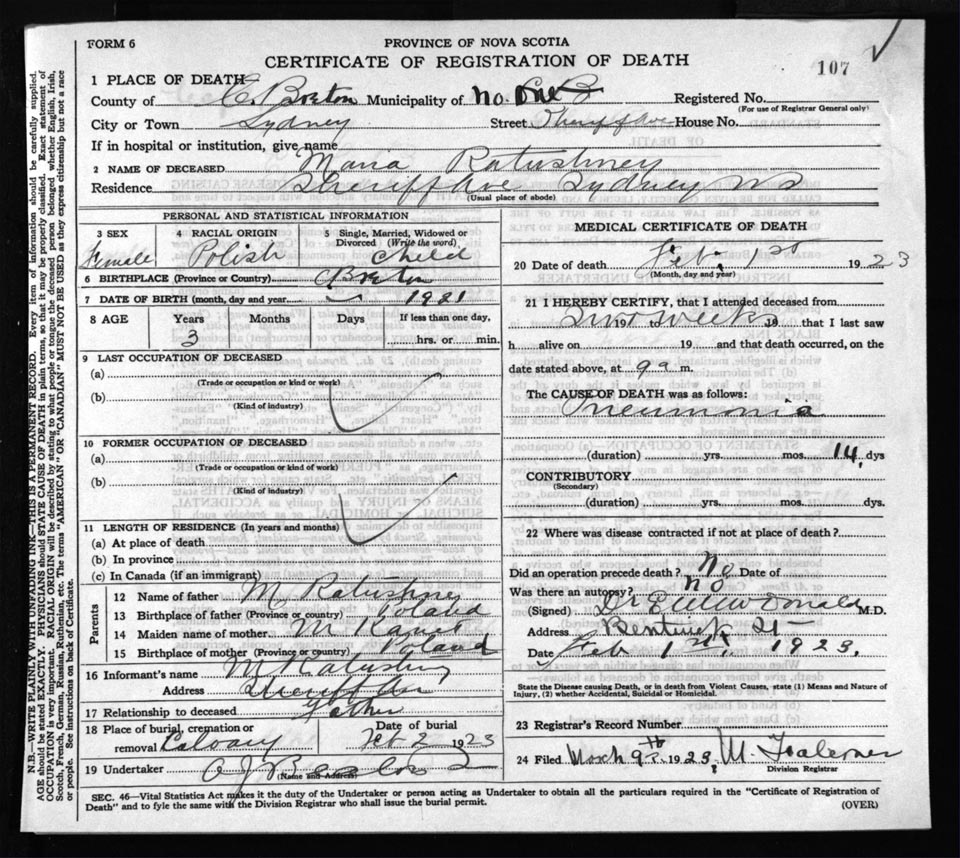 FORM 6
PROVINCE OF NOVA SCOTIA
CERTIFICATE OF REGISTRATION OF DEATH
107
1 PLACE OF DEATH
County of C. Breton Municipality of No.
Registered No.
(For use of Registrar General only)
City or Town Sydney Street Sheriff Ave House No.
If in hospital or institution, give name
2 NAME OF DECEASED Maria Ratushney
Residence Sheriff Ave Sydney NS
(Usual place of abode)
PERSONAL AND STATISTICAL INFORMATION
3 SEX
Female
4 RACIAL ORIGIN
Polish
5 Single, Married, Widowed or Divorced (Write the word)
Child
6 BIRTHPLACE (Province or Country) C Breton
7 DATE OF BIRTH (month, day and year) 1921
8 AGE Years Months Days If less than one day,
3 hrs. or min.
9 LAST OCCUPATION OF DECEASED
(a)
(Trade or occupation or kind or work)
(b)
(Kind of industry)
10 FORMER OCCUPATION OF DECEASED
(a)
(Trade or occupation or kind or work)
(b)
(Kind of industry)
11 LENGTH OF RESIDENCE (In years and months)
(a) At place of death
(b) In province
(c) In Canada (if an immigrant)
Parents
12 Name of father M Ratushney
13 Birthplace of father (Province or country) Poland
14 Maiden name of mother M
15 Birthplace of mother (Province or country) Poland
16 Informant's name M Ratushny
Address Sheriff Ave
17 Relationship to deceased Father
18 Place of burial, cremation or removal Calvary
Date of burial
Feb 2 1923
19 Undertaker A J
(Name and Address)
MEDICAL CERTIFICATE OF DEATH
20 Date of death Feb. 1st 1923
(Month, day and year)
21 I HEREBY CERTIFY, that I attended deceased from
Two 19 to Weeks 19 that I last saw
h alive on 19 and that death occurred, on the
date stated above, at 9 a. m.
The CAUSE OF DEATH was as follows:
Pneumonia
(duration) yrs. mos. 14 dys
CONTRIBUTORY
(Secondary)
(duration) yrs. mos. dys.
22 Where was disease contracted if not at place of death?
Did an operation precede death? No Date of
Was there an autopsy? No
(Signed) Dr M.D.
Address Bentinck St
Date Feb 1st, 1923.
State the Disease causing Death, or in death from Violent Causes, state (1) Means and Nature of
Injury, (2) whether Accidental, Suicidal or Homicidal.
23 Registrar's Record Number
24 Filed March 9th 1923, M
Division Registrar
SEC. 46—Vital Statistics Act makes it the duty of the Undertaker or person acting as Undertaker to obtain all the particulars required in the "Certificate of Registration of
Death" and to fyle the same with the Division Registrar who shall issue the burial permit.
(OVER)
N.B.—WRITE PLAINLY WITH UNFADING INK—THIS IS A PERMANENT RECORD. Every item of information should be carefully supplied.
AGE should be stated EXACTLY. PHYSICIANS should STATE CAUSE OF DEATH in plain terms, so that it may be properly classified. Exact statement of
OCCUPATION is very important. RACIAL ORIGIN will be described by stating to what people or tongue the deceased person belonged whether English, Irish,
Scotch, French, German, Russian, Ruthenian, etc. The terms "AMERICAN" OR "CANADIAN" MUST NOT BE USED as they express citizenship but not a race
or people. See instructions on back of Certificate.